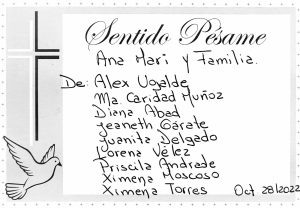 Sentido Pésame
Ana Mari y Familia.
De: Alex Ugalde
Ma. Caridad Muñoz
Diana Abad
Jeaneth Gárate
Juanita Delgado
Lorena Vélez
Priscila Andrade
Ximena Moscoso
Ximena Torres Oct 28/2022